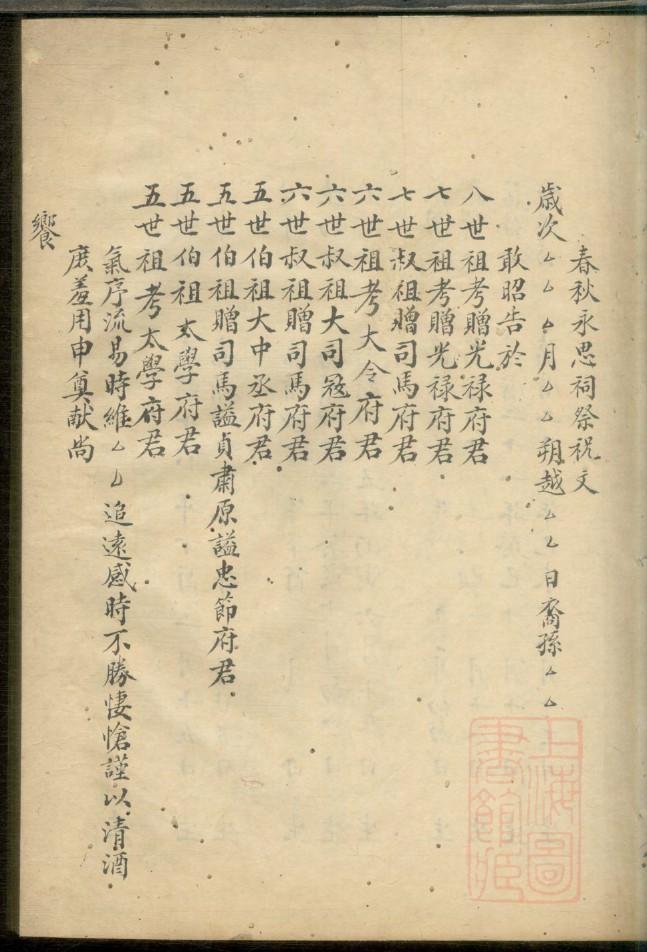 春秋永思祠祭祝文
歲次厶厶厶月厶厶朔越厶厶日裔孫厶厶
敢昭告於
八世祖考贈光祿府君
七世祖考贈光祿府君
七世叔祖贈司馬府君
六世祖考大令府君
六世叔祖大司寇府君
六世叔祖贈司馬府君
五世伯祖大中丞府君
五世伯祖贈司馬謚貞肅原謚忠節府君
五世伯祖太學府君
五世祖考太學府君
氣序流易時維厶厶追遠感時不勝悽愴謹以清酒
庶羞用申奠献尚
饗
上海圖書館藏